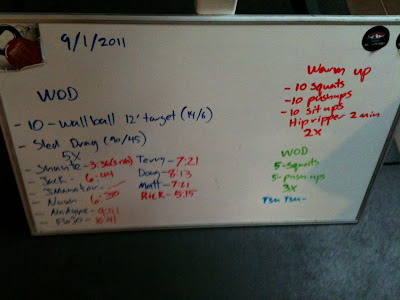 9/1/2011
WOD
- 10 - wall ball 12' target (14/6)
- Sled Drag (90/45)
5X
- Shunte - 3:36
- Jack - 6:44
- Jimanator -
- Noah 6:30
- Nadyne - 9:51
- 10:41
Terry - 7:21
Doug - 8:13
Matt - 7:21
Rick - 5:15
Warm up
- 10 squats
- 10 pushups
- 10 situps
Hip ripper 2 min
2X
WOD
5 - squats
5 - push ups
3X
Tsu Tsu -